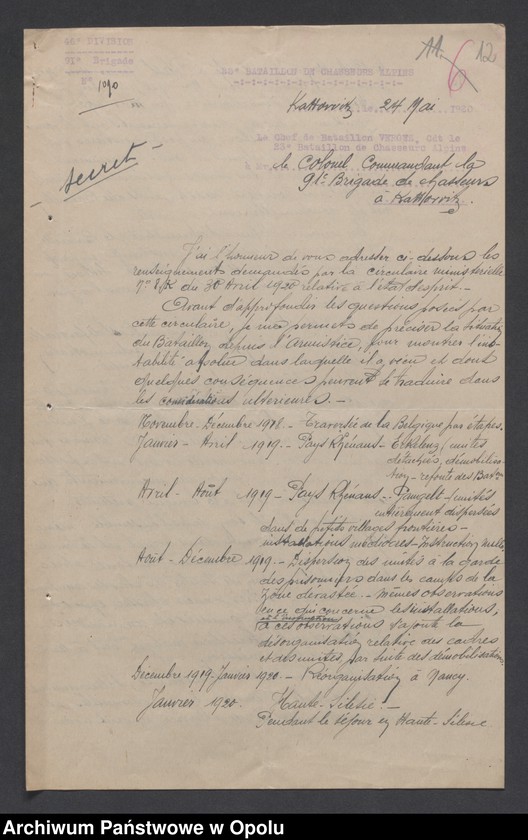 46e DIVISION
91e Brigade
No
1090
11
6
12
23e BATAILLON DE CHASSEURS ALPINS
Kattowitz, le 24 Mai 1920
secret
Le Chef de Bataillon VERGNE, Cdt le
23e Bataillon de Chasseurs Alpins
à
le Colonel Commandant la
91e Brigade de chasseurs
à Kattowitz.
J'ai l'honneur de vous adresser ci-dessous les
renseignements demandés par la circulaire ministérielle
no du 30 Avril 1920 relative à l'état d'esprit.
Avant d'approfondir les questions posées par
cette circulaire, je me permets de préciser la situation
du Bataillon depuis l'Armistice, pour montrer l'ins-
tabilité absolue dans laquelle il a vécu et dont
quelques conséquences peuvent se traduire dans
les considérations ultérieures. -
Novembre. Décembre 1918. - Traversée de la Belgique par étapes.
Janvier - Avril 1919. - Pays Rhénans - unités
détachées, démobilisa-
tion - refonte des Batons
Avril - Août 1919 - Pays Rhénans - unités
entièrement dispersées
dans de petits villages frontières -
installations médiocres - Instruction nulle
Août - Décembre 1919. - Dispersion des unités à la garde
des prisonniers dans les camps de la
Zone dévastée. - mêmes observations
en ce qui concerne les installations,
et l'instruction
à ces observations s'ajoute la
désorganisation relative des cadres
et des unités, par suite des démobilisations.
Décembre 1919. Janvier 1920. - Réorganisation à Nancy.
Janvier 1920. Haute-Silésie. -
Pendant le séjour en Haute-Silésie
Archiwum Państwowe w Opolu